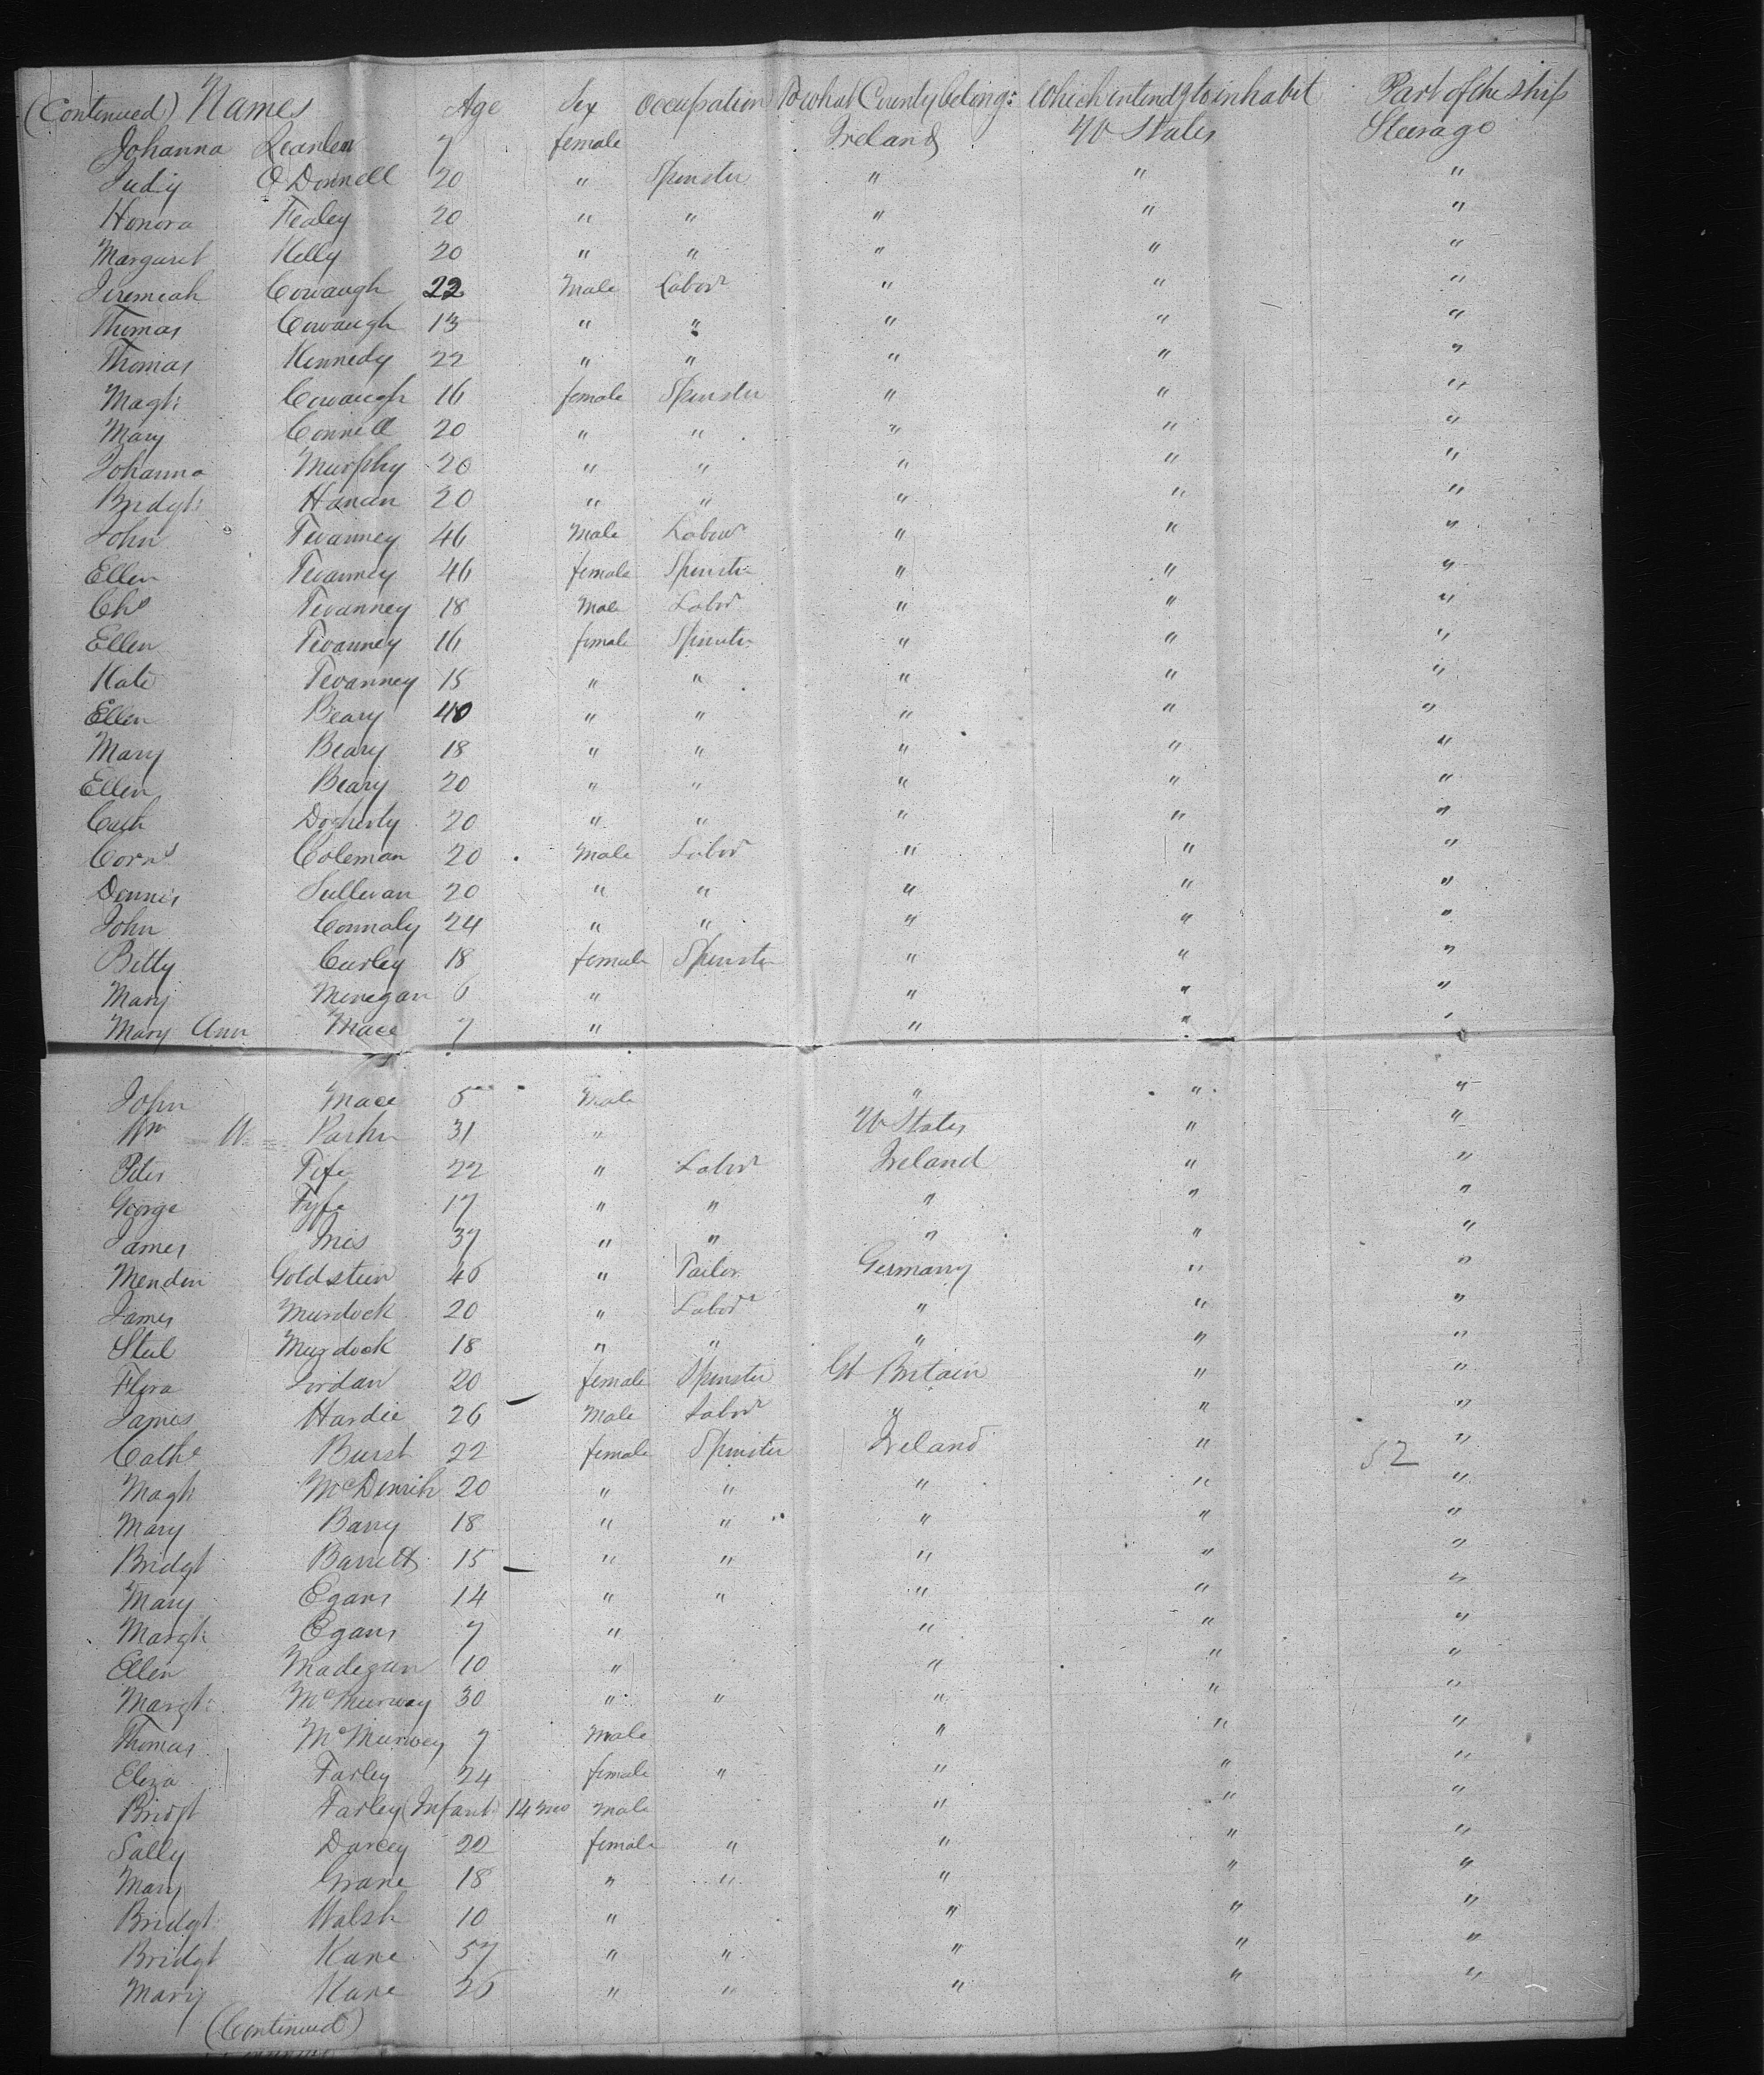 (Continued) Names Age Sex Occupation To what County belong: Which intend to inhabit Part of the ship
Johanna 7 female Ireland U States Steerage
Judy O Donnell 20 " Spinster " " "
Honora Fealey 20 " " " " "
Margaret Kelly 20 " " " " "
Jeremiah Cowaugh 22 Male Labor " " "
Thomas Cowaugh 13 " " " " "
Thomas Kennedy 22 " " " " "
Magt: Cowaugh 16 female Spinster " " "
Mary Connell 20 " " " " "
Johanna Murphy 20 " " " " "
Bridgt: Hanan 20 " " " " "
John Tevanney 46 Male Labour " " "
Ellen Tevanney 46 female Spinster " " "
Chs Tevanney 18 Male Labor " " "
Ellen Tevanney 16 female Spinster " " "
Kate Tevanney 15 " " " " "
Ellen Beary 40 " " " " "
Mary Beary 18 " " " " "
Ellen Beary 20 " " " " "
Cath Dogherty 20 " " " " "
Corns Coleman 20 Male Labor " " "
Dennis Sullivan 20 " " " " "
John Connaly 24 " " " " "
Betty Curley 18 female Spinster " " "
Mary Menegan 6 " " " "
Mary Ann Mace 7 " " " "
John Mace 5 Male " " "
Wm W Parker 31 " U States " "
Peter Fife 22 " Labor Ireland " "
George Fyfe 17 " " " " "
James Inis 37 " " " " "
Goldstein 46 " Tailor Germany " "
James Murdock 20 " Labor " " "
Murdock 18 " " " " "
Flora Jordan 20 female Spinster Gt Britain " "
James Hardie 26 Male Labor " " "
Cathe Burst 22 female Spinster Ireland " "
52
Magt 20 " " " " "
Mary Barry 18 " " " " "
Bridgt Barrett 15 " " " " "
Mary Egans 14 " " " " "
Margt: Egans 7 " " " "
Ellen Madegan 10 " " " "
Margt: McMurway 30 " " " " "
Thomas McMurwey 7 Male " " "
Eliza Farley 24 female " " " "
Bridgt Farley (Infant) 14 mo Male " " "
Sally Darcey 22 female " " " "
Mary Grane 18 " " " " "
Bridgt Walsh 10 " " " "
Bridgt Kane 57 " " " " "
Mary Kane 25 " " " " "
(Continued)